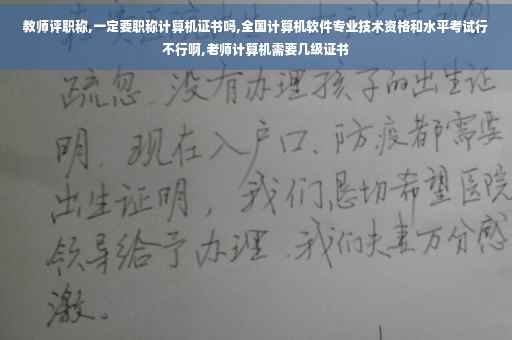 教师评职称,一定要职称计算机证书吗,全国计算机软件专业技术资格和水平考试行
不行啊,老师计算机需要几级证书
疏忽.没有办理孩子的出生证
明.现在入户口、防疫都需要
出生证明，我们恳切希望医院
领导给予办理.我们夫妻万分感
激。